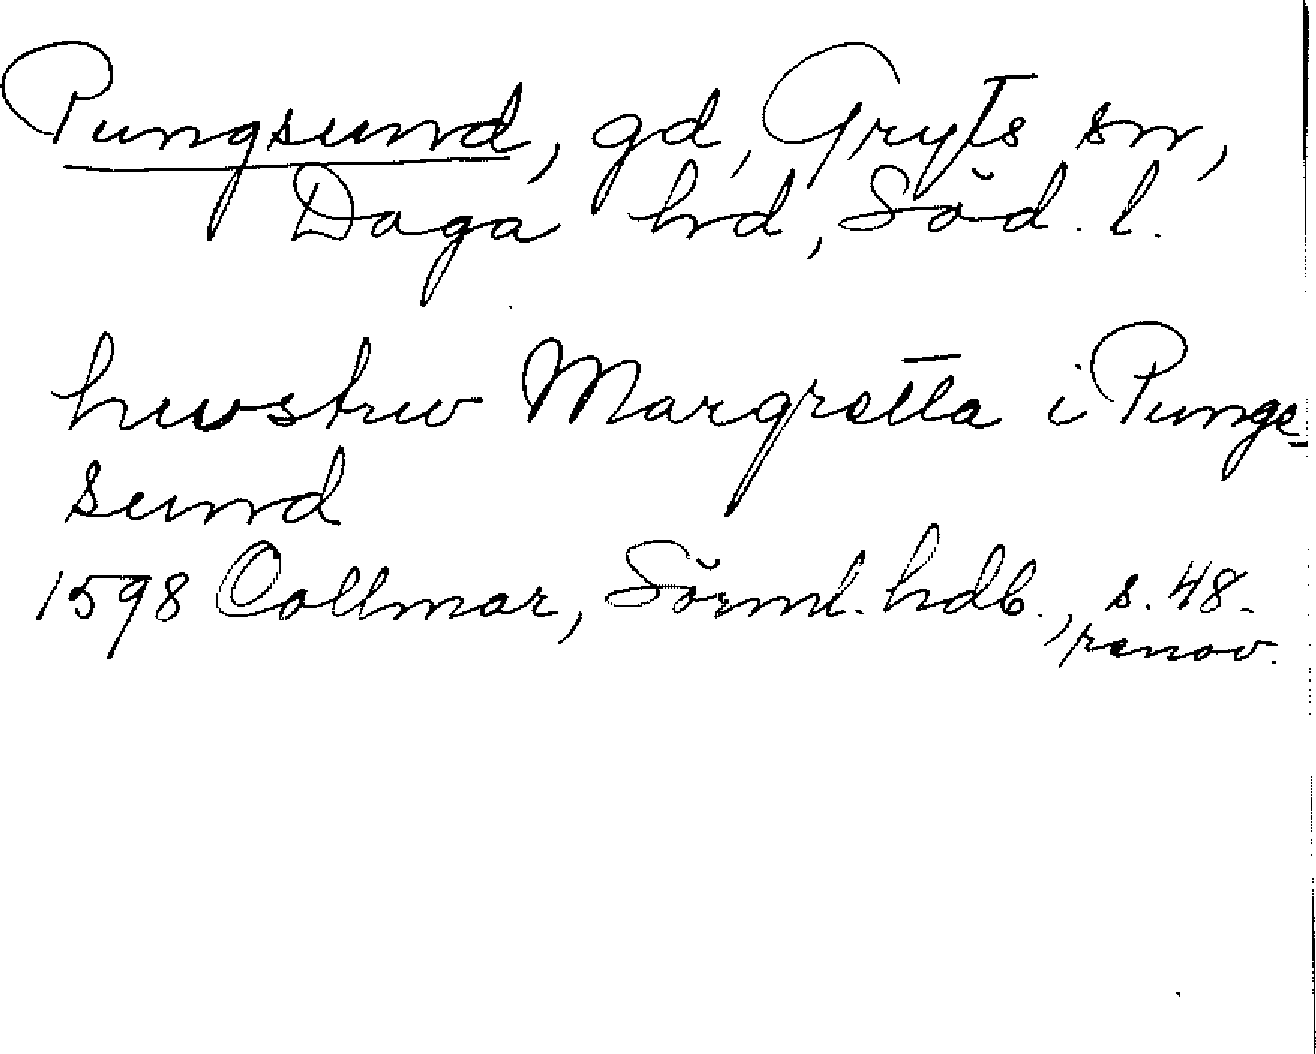 Pungsund, gd, Gryts sn,
Daga hd, Söd. l.
hwstrw Margretta i Punge-
sund
1598 Collmar, Sörml. hdb., s. 48.
renov.